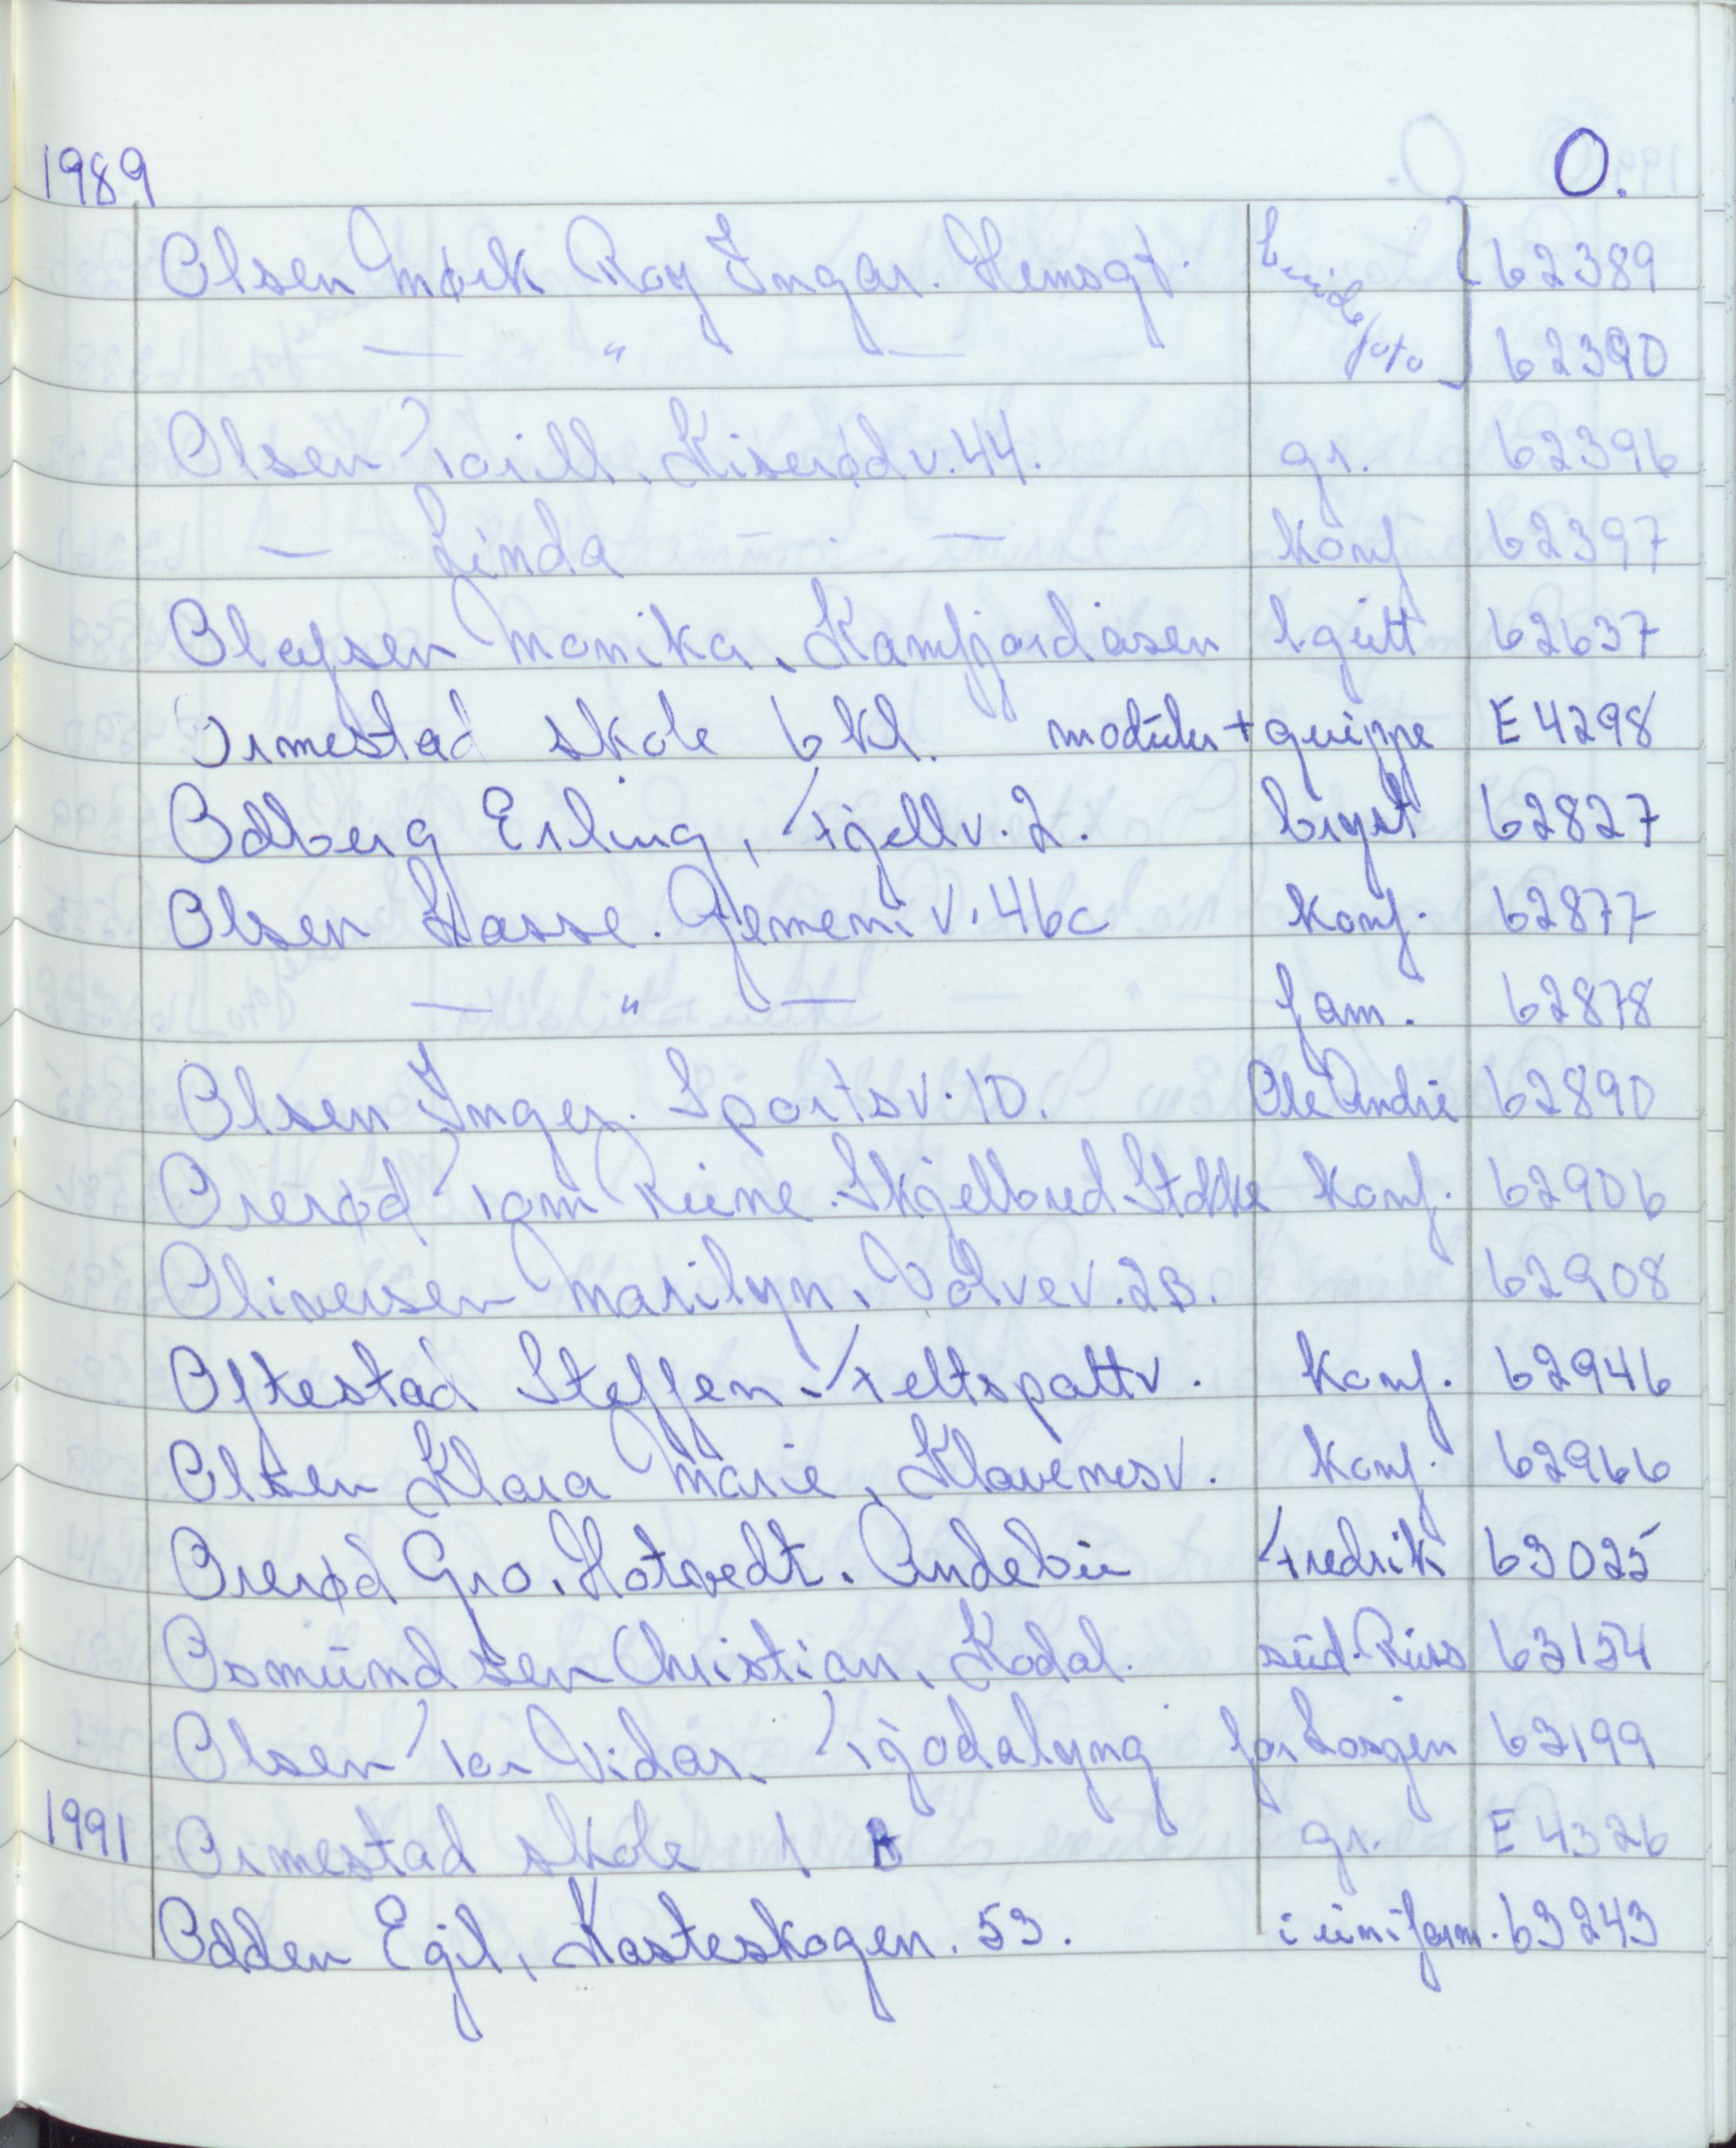 1989 O.
Olsen Mørk Roy Ingar. Hemsgt. brudefoto 62389
— " — 62390
Olsen Torill. Kiserødv. 44. gr. 62396
— Linda — konf 62397
Olafsen Monika. Kamfjordåsen l.gutt 62637
Ormestad skole 6 kl. moduler + gruppe E 4298
Odberg Erling, Fjellv. 2. bryst 62827
Olsen Lasse. Gemeniv. 46c konf. 62877
— " — fam. 62878
Olsen Inger. Sportsv. 10. Ole Andrè 62890
Orerød Tom Rune. Skjelbred Stokke konf. 62906
Oliversen Marilyn. Volvev. 2B. 62908
Oftestad Steffen. Feltspattv. konf. 62946
Olsen Klara Marie, Klavenesv. konf. 62966
Orerød Gro. Hotvedt. Andebu Fredrik 63025
Osmundsen Christian, Kodal. sud. Russ 63154
Olsen Tor Vidar. Tjodalyng for Lorgen 63199
1991 Ormestad skole 1 B gr. E 4326
Odden Egil, Kasteskogen. 53. i uniform. 63243